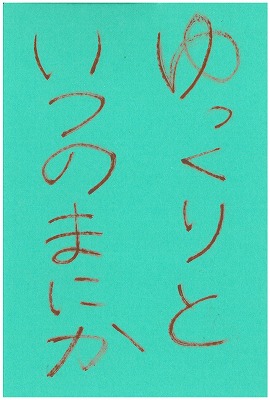 ゆっくりと
いつのまにか